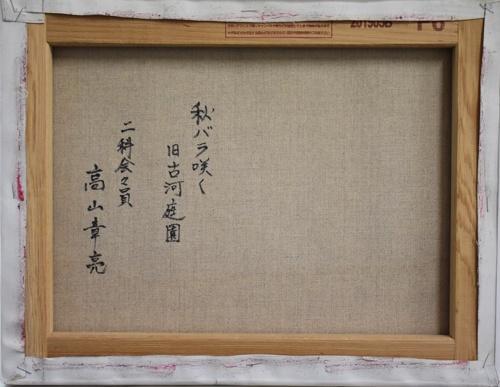 秋バラ咲く
旧古河庭園
二科会々員
高山章亮
F6